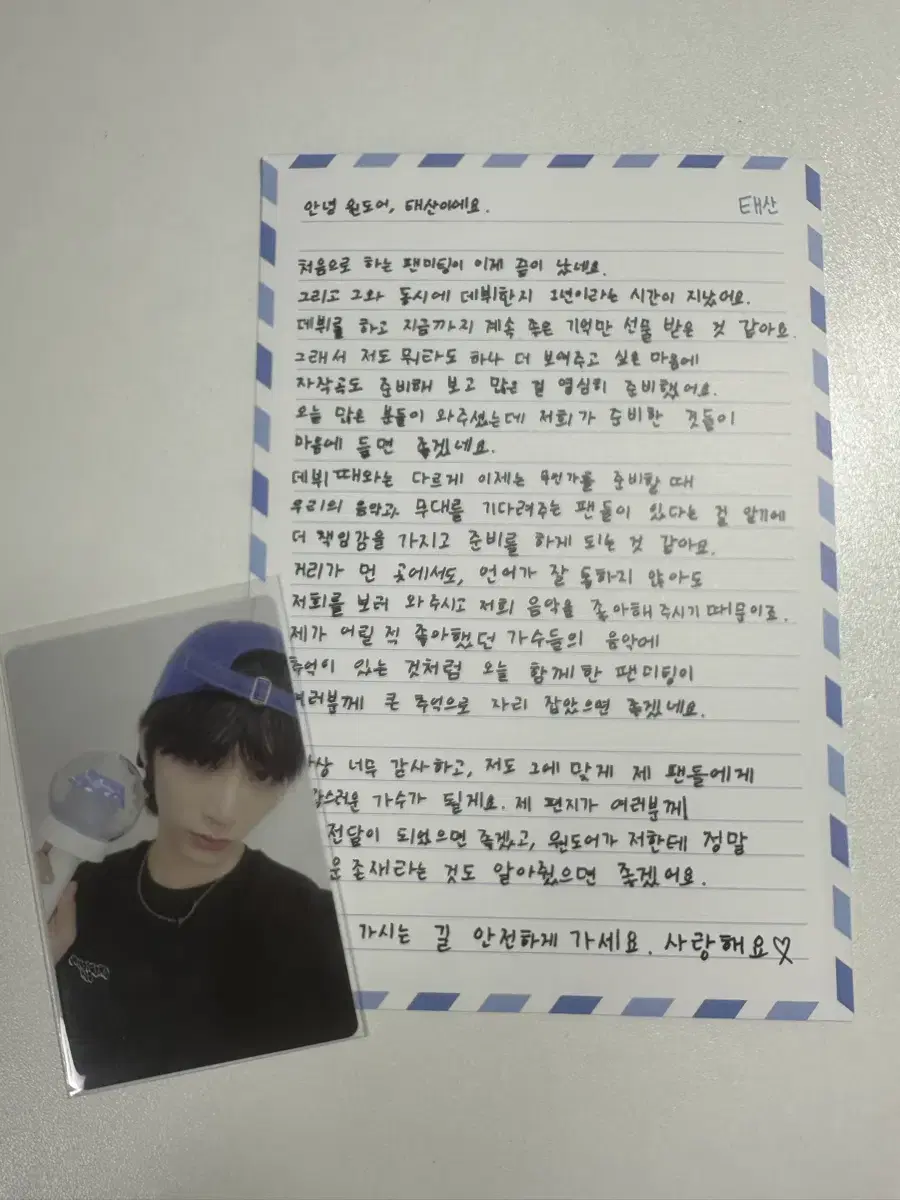 안녕 원도어, 태산이에요.
태산
처음으로 하는 팬미팅이 이제 끝이 났네요.
그리고 그와 동시에 데뷔한지 1년이라는 시간이 지났어요.
데뷔를 하고 지금까지 계속 좋은 기억만 선물 받은 것 같아요.
그래서 저도 뭐라도 하나 더 보여주고 싶은 마음에
자작곡도 준비해 보고 많은 걸 열심히 준비했어요.
오늘 많은 분들이 와주셨는데 저희가 준비한 것들이
마음에 들면 좋겠네요.
데뷔 때와는 다르게 이제는 무언가를 준비할 때
우리의 음악과 무대를 기다려주는 팬들이 있다는 걸 알기에
더 책임감을 가지고 준비를 하게 되는 것 같아요.
거리가 먼 곳에서도, 언어가 잘 통하지 않아도
저희를 보러 와주시고 저희 음악을 좋아해 주시기 때문이죠.
제가 어릴 적 좋아했던 가수들의 음악에
추억이 있는 것처럼 오늘 함께한 팬미팅이
여러분께 큰 추억으로 자리 잡았으면 좋겠네요.
상 너무 감사하고, 저도 그에 맞게 제 팬들에게
스러운 가수가 될게요. 제 편지가 여러분께
전달이 되었으면 좋겠고, 원도어가 저한테 정말
운 존재라는 것도 알아줬으면 좋겠어요.
가시는 길 안전하게 가세요. 사랑해요♡